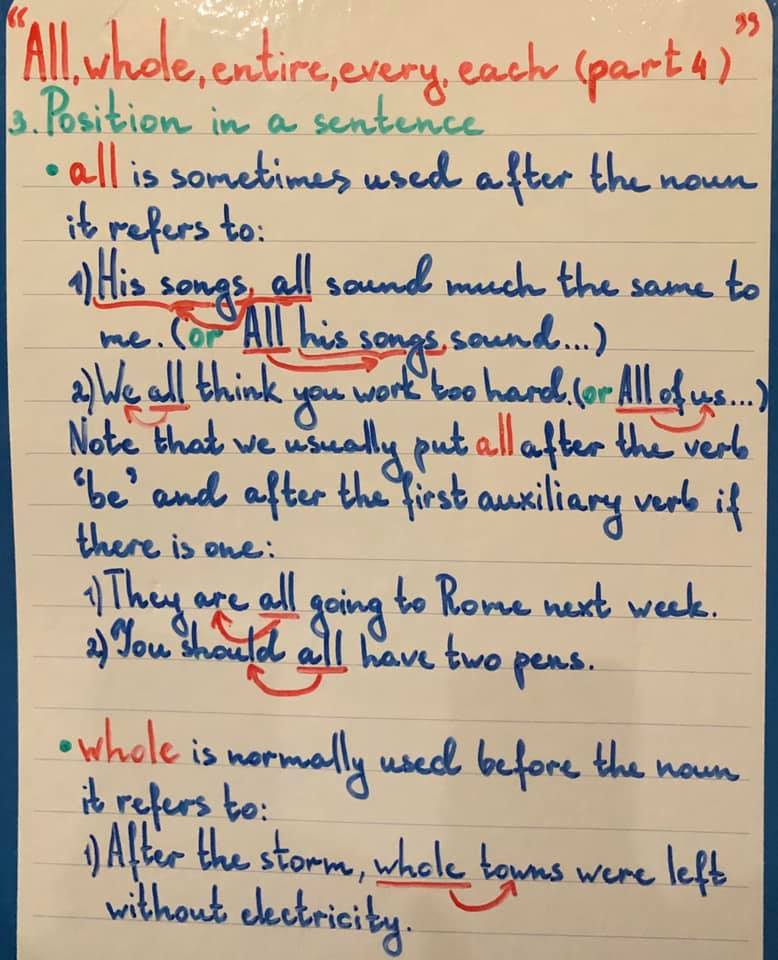 "All, whole, entire, every, each (part 4)"
3. Position in a sentence
• all is sometimes used after the noun
it refers to:
1) His songs, all sound much the same to
me. (or All his songs sound...)
2) We all think you work too hard. (or All of us...)
Note that we usually put all after the verb
'be' and after the first auxiliary verb if
there is one:
1) They are all going to Rome next week.
2) You should all have two pens.
• whole is normally used before the noun
it refers to:
1) After the storm, whole towns were left
without electricity.